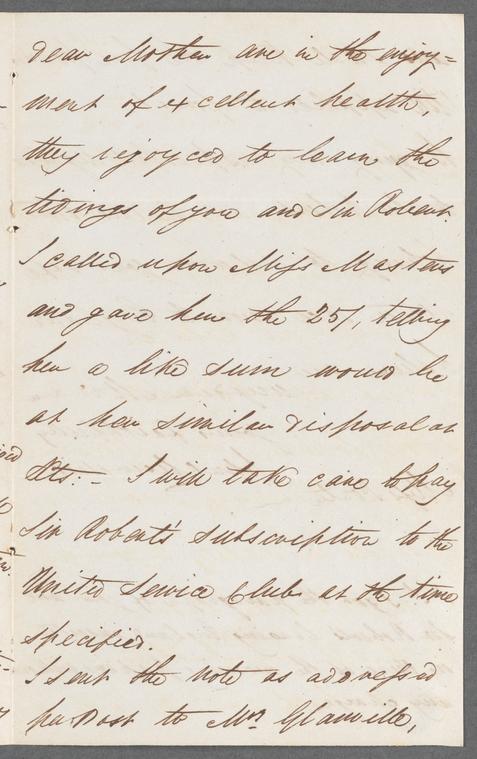 dear Mother are in the enjoy=
ment of excellent health,
they rejoyced to learn the
tidings of you and Sir Robert.
I called upon Miss Masters
and gave her the 25/, telling
her a like sum would be
at her similar disposal at
I will take care to pay
Sir Robert's subscription to the
United Service Club at the time
specified.
I sent the note as addressed
per Post to Mrs Glanville,